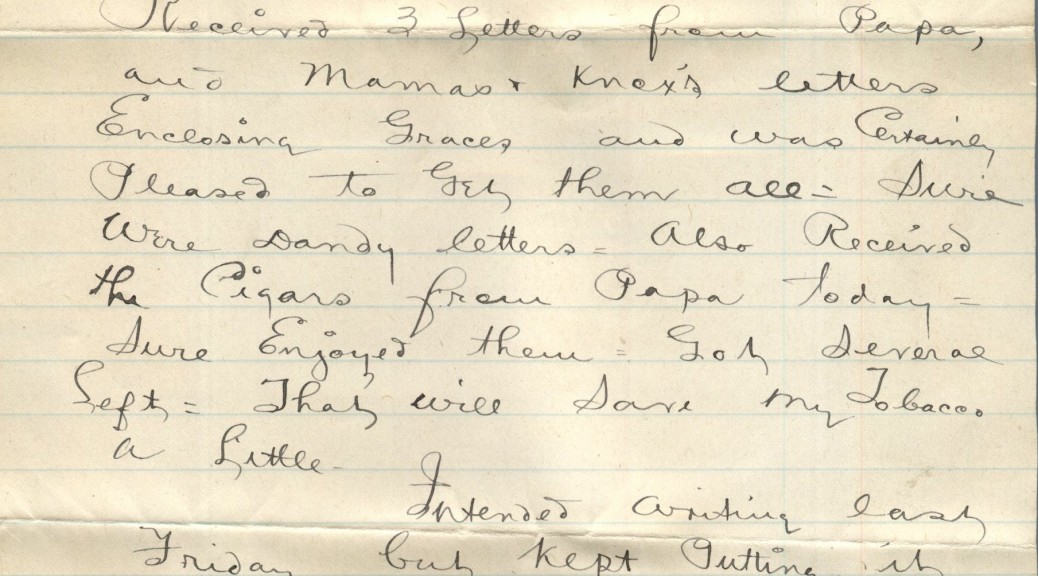 Received 3 Letters from Papa,
and Mamas & Knox's letters
Enclosing Graces and was Certainly
Pleased to Get them all = Sure
Were Dandy letters = Also Received
the Cigars from Papa today =
Sure Enjoyed them = Got several
Left = That will Save my Tobacco
a Little -
Intended writing last
Friday but kept Putting it